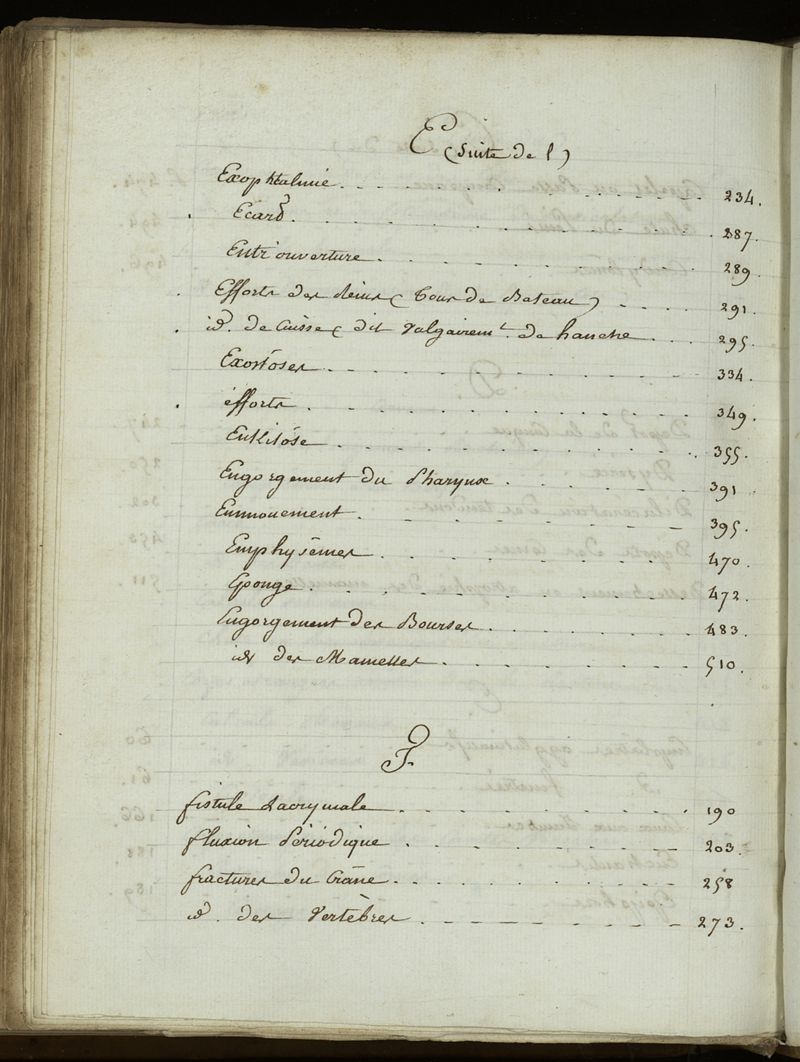 E (suite de l')
Exophtalmie. 234.
Ecard. 287.
Entr'ouverture. 289.
Efforts des Reins (Tour de Bateau) 291.
id. de Cuisse (dit Vulgairemt. de hanche 295.
Exostoses. 334.
efforts. 349.
Enkilose. 355.
Engorgement du Pharynx. 391
Ennouement. 395.
Emphysèmes. 470.
Eponge. 472.
Engorgement des Bourses. 483.
id. des Mamelles. 510.
F.
fistule Lacrymale. 190
fluxion Périodique. 203.
fractures du Crâne. 258
id. des Vertèbres. 273.